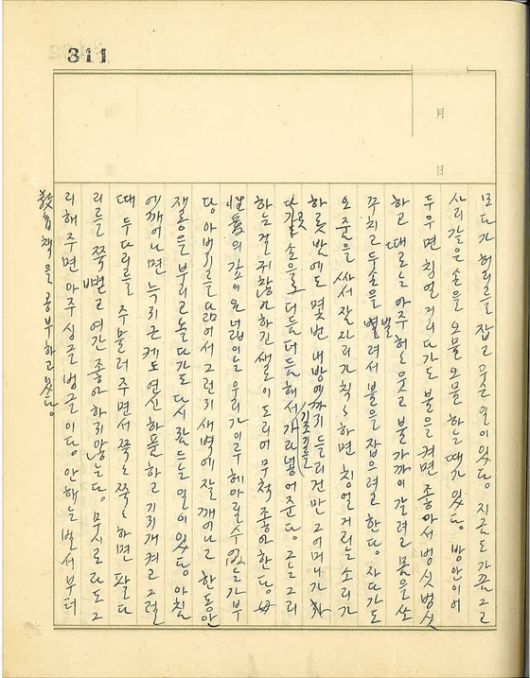 311
月
日
모다가 허리를 잡고 웃은 일이 있다. 지금도 가끔 그 고
사리 같은 손을 오물오물 하는 때가 있다. 방안이 어
두우면 칭얼거리다가도 불을 켜면 좋아서 벙싯벙싯
하고 때로는 아주 허 웃고 불 가까이 갈려고 몸을 솟
꾸치고 두 손을 벌려서 불을 잡으려고 한다. 자다가도
오줌을 싸서 잠자리가 척척하면 칭얼거리는 소리가
하룻밤에도 몇번 내 방에까지 들리건만 그 어머니가
손을로 더듬더듬해서 기저귀를 가라넣어 준다. 그는 그리
하는 걸 귀찮아하긴새로이 도리어 무척 좋아한다.
의 깊이와 넓이는 우리가 이루 헤아릴 수 없는가부
다. 아버지를 닮어서 그런지 새벽에 잘 깨어나고 한동안
재롱을 부리고 놀다가도 다시 잠드는 일이 있다. 아침
에 깨어나면 늑지근케도 연신 하품하고 기지개켜고 그럴
때 두 다리를 주물러 주면서 쭉쭉 하면 팔다
리를 쭉 뻗고 여간 좋아하지 않는다. 무시로라도 그
리해 주면 아주 싱글벙글이다. 안해는 벌서부터
책을 공부하고 있다.